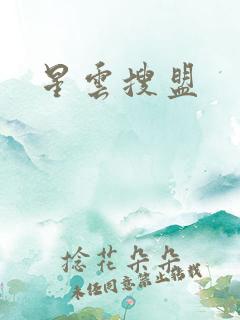 星雲搜盟
捻花朵朵
未經同意禁止拮載